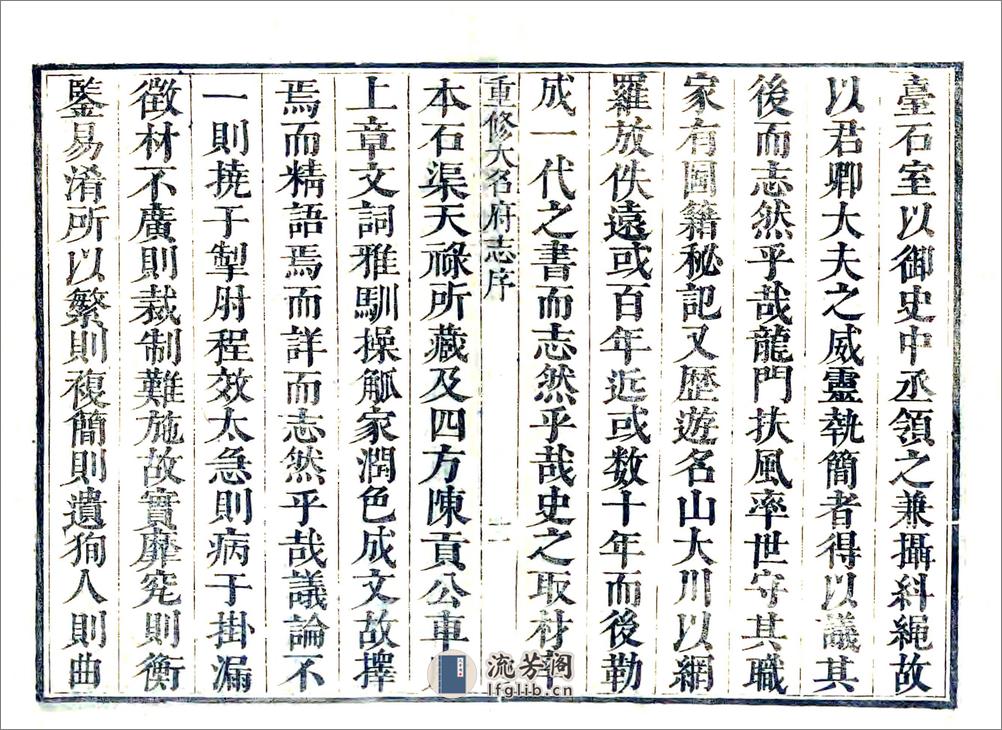 臺石室以御史中丞領之兼攝糾繩故
以君卿大夫之威靈執簡者得以議其
後而志然乎哉龍門扶風率世守其職
家有圖籍秘記又歷遊名山大川以網
羅放佚遠或百年近或数十年而後勒
成一代之書而志然乎哉史之取材率
重修大名府志序
二
本石渠天祿所藏及四方陳貢公車
上章文詞雅馴操觚家潤色成文故擇
焉而精語焉而詳而志然乎哉議論不
一則撓于掣肘程效太急則病于掛漏
徵材不廣則裁制難施故實靡究則衡
鑒易淆所以繁則複簡則遺狥人則曲
流芳阁
lfglib.cn